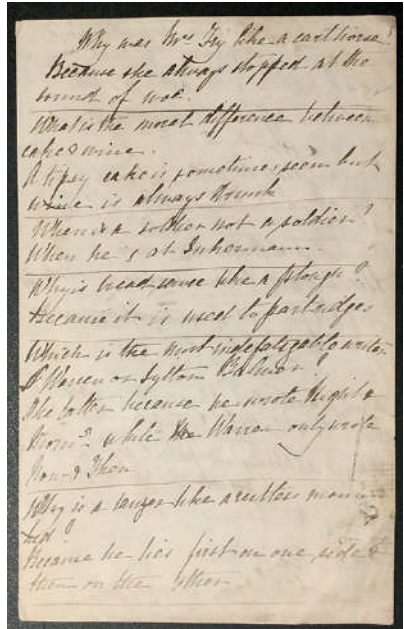 Why was Mrs Fry like a cart horse?
Because she always stopped at the
sound of woe.
What is the moral difference between
cake & wine.
A tipsy cake is sometimes seen but
wine is always drunk
When is a soldier not a soldier?
When he's at Inkermann.
Why is bread sauce like a plough?
Because it is used to partridges
Which is the most indefatigable writer
Warren or Lytton Bulwer
The latter because he wrote Night &
Morng while Warren only wrote
Now & Then
Why is a lawyer like a restless man in
bed?
Because he lies first on one side &
then on the other